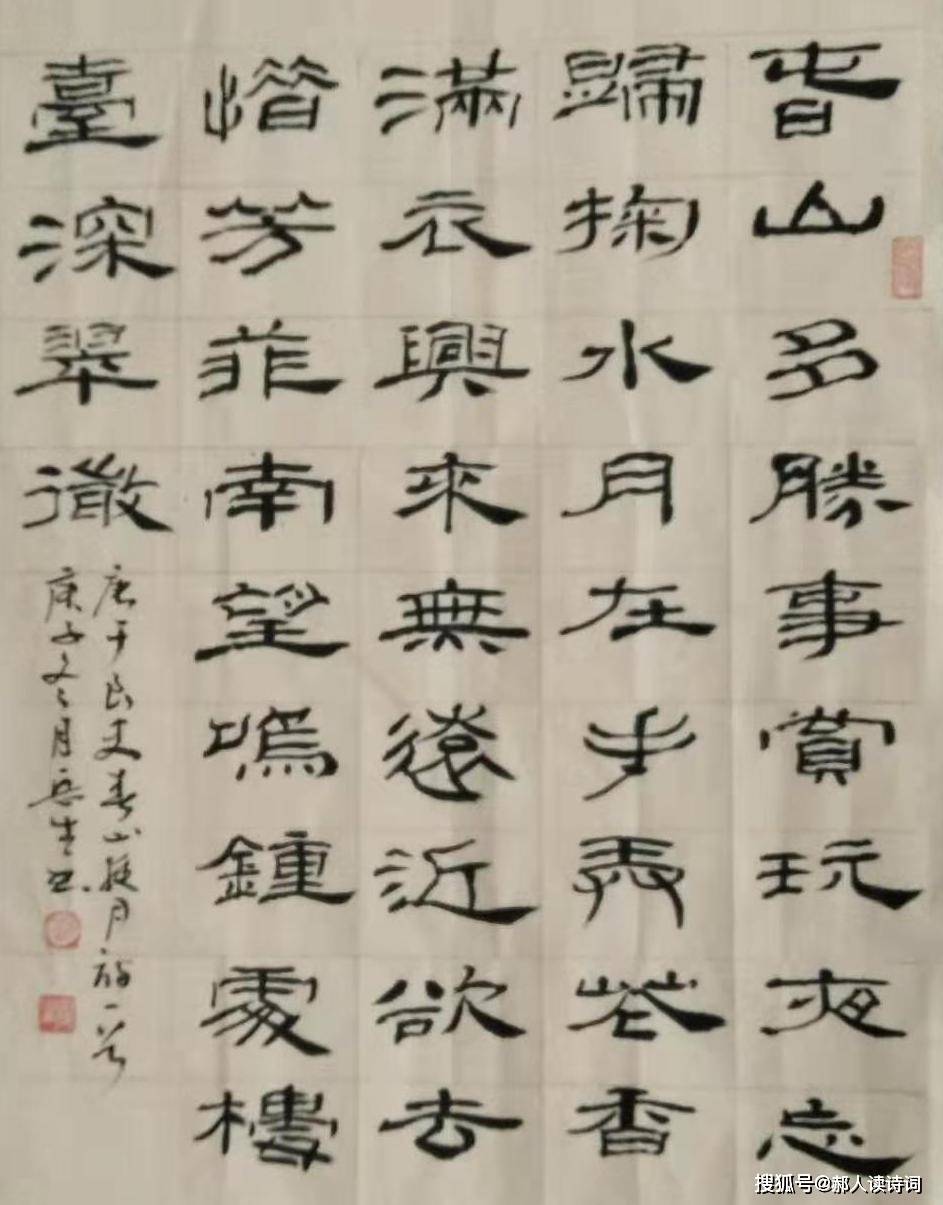 旾山多勝事賞玩夜忘
歸掬水月在手弄花香
滿衣興來無遠近欲去
惜芳菲南望鳴鍾處樓
臺深翠微
唐于良史春山夜月诗一首
庚子冬月岳生书
搜狐号@郝人读诗词